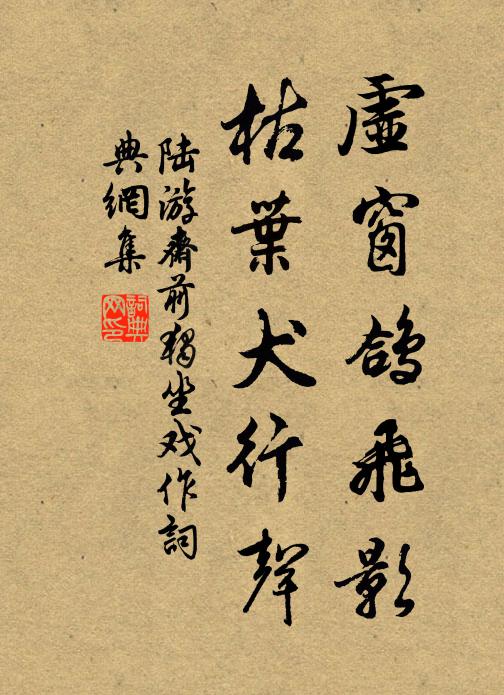 虛窗鴿飛影
枯葉犬行聲
陸游齋前獨坐戏作詞
典網集
詞典
网印